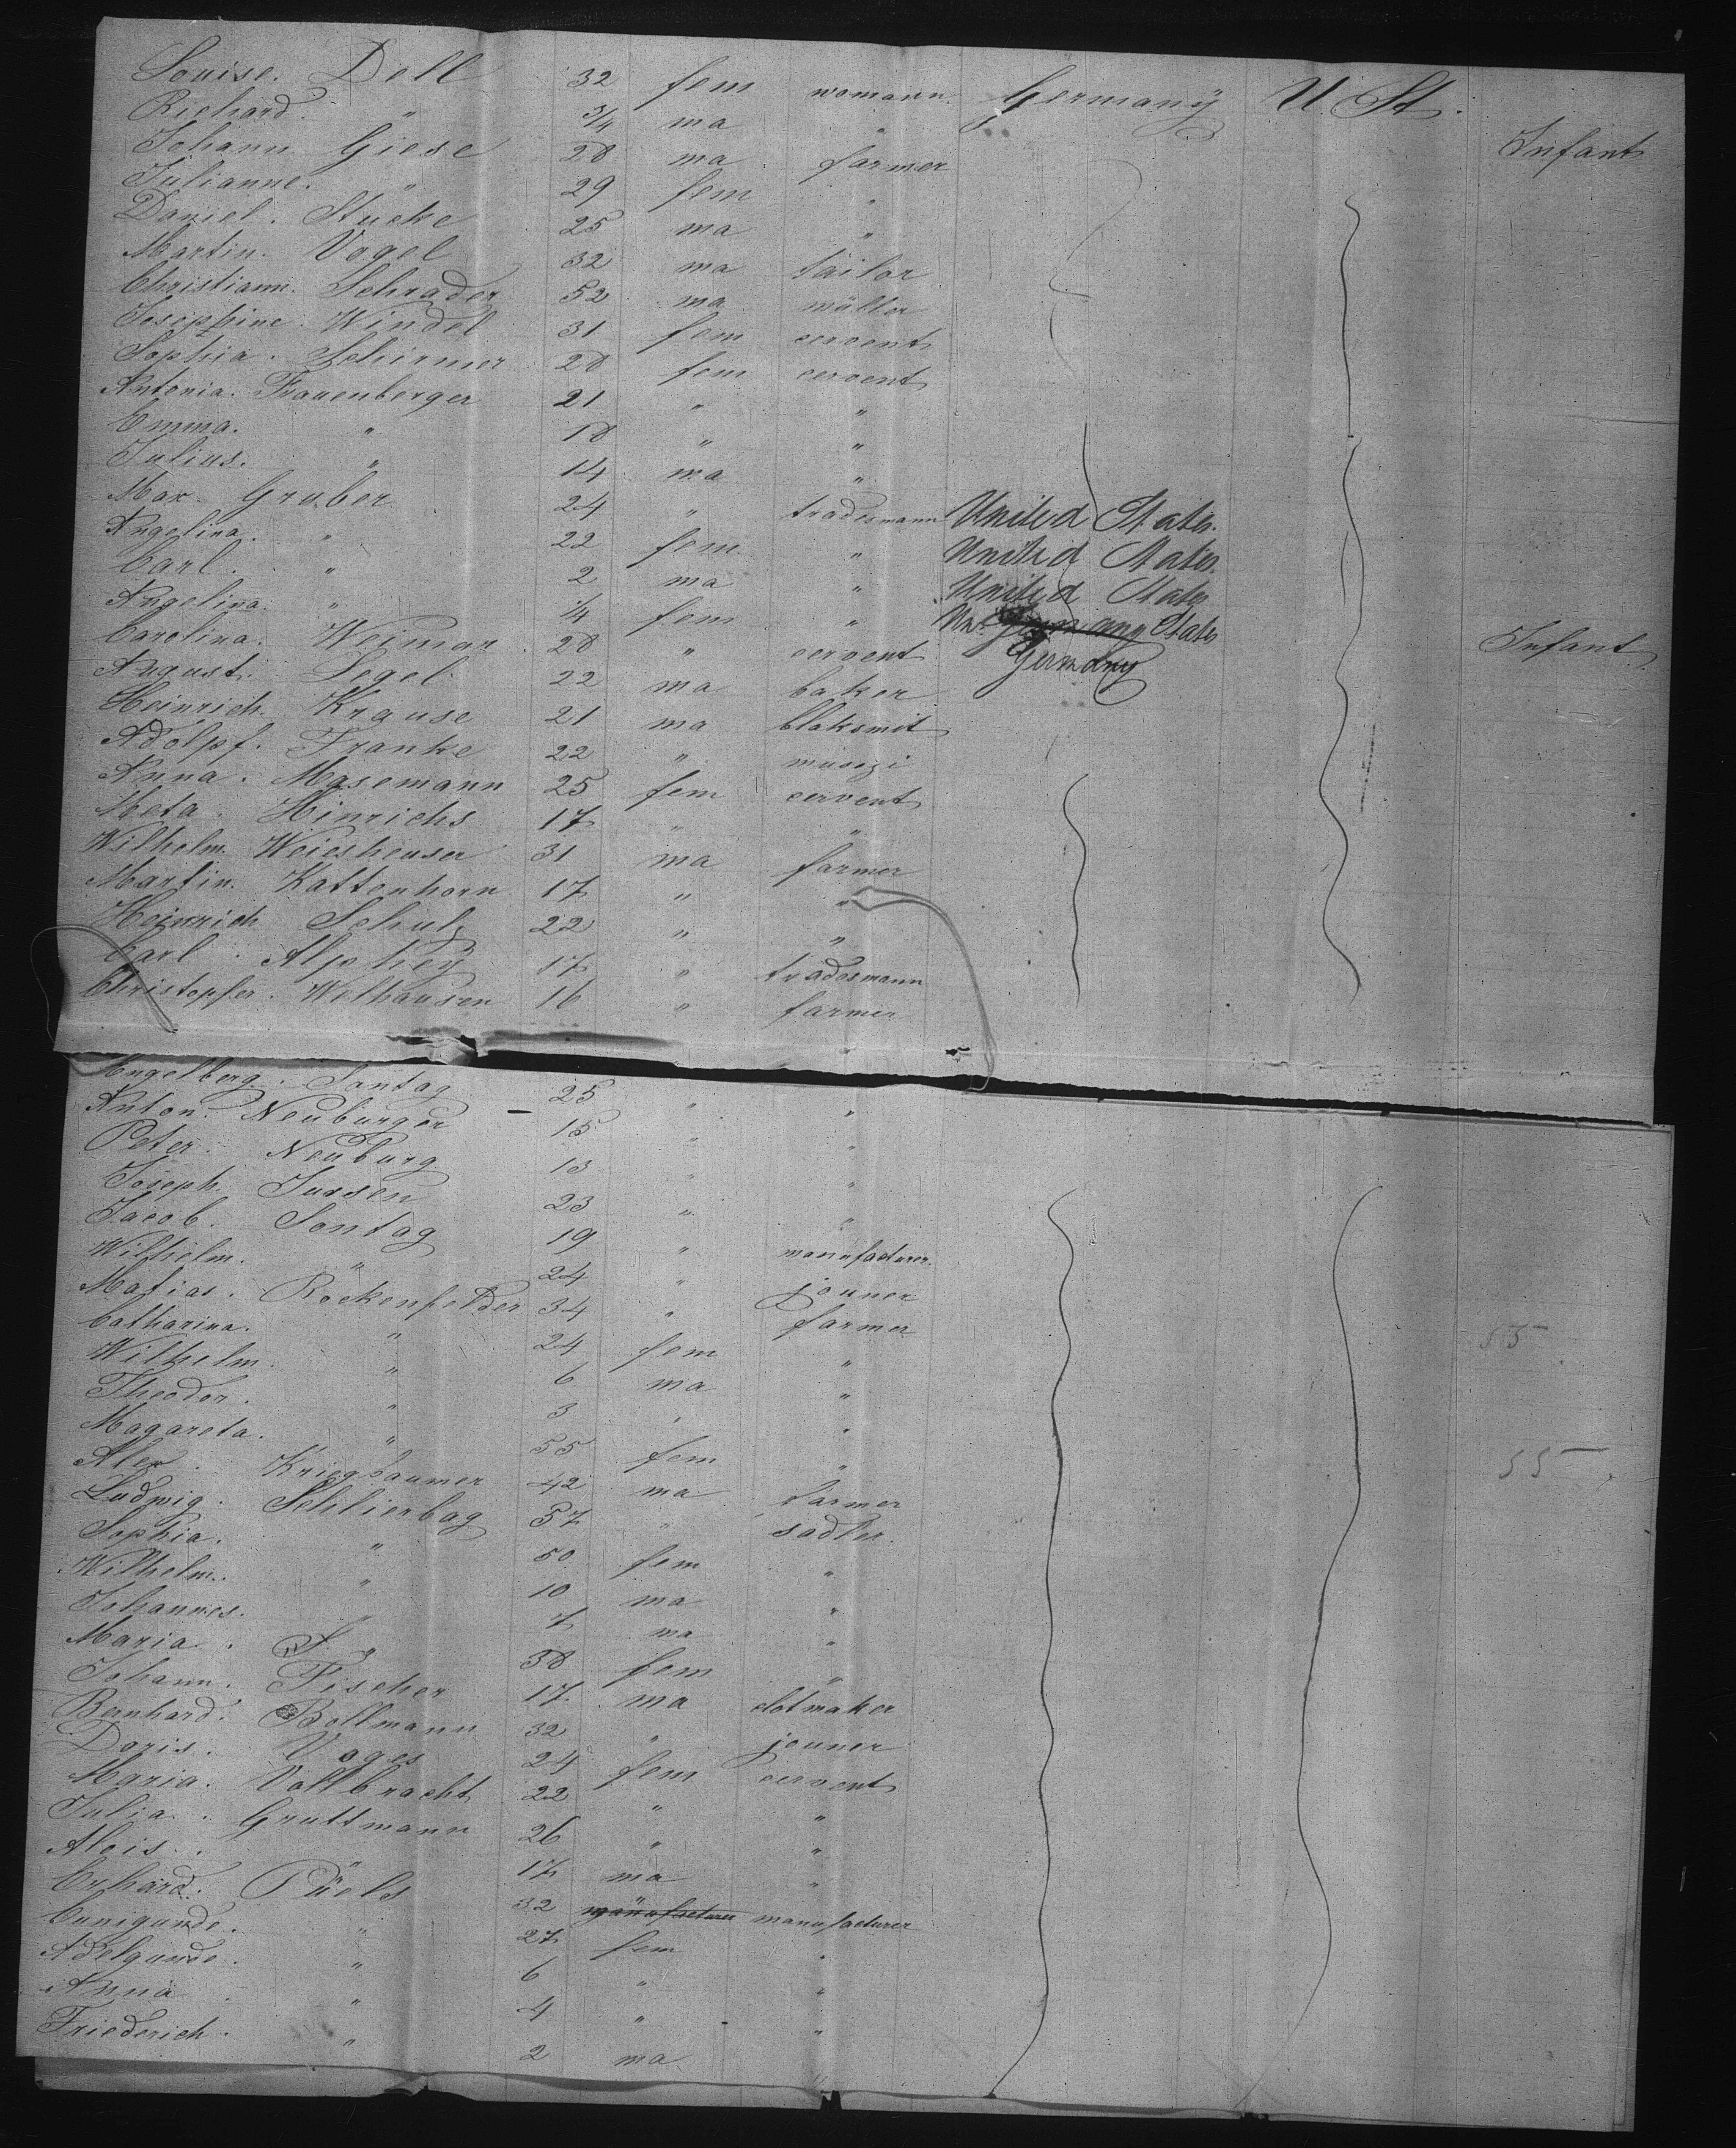 Louise. Dell 32 fem womann. Germany U. St.
Richard. " 3/4 ma " Infant
Johann Giese 28 ma farmer
Julianne. " 29 fem "
Daniel. Stucke 25 ma "
Martin. Vogel 32 ma tailor
Christiann. Schrader 52 ma müller
Josephine. Windel 31 fem cervent
Sophia. Schirmer 28 fem cervent
Antonia. Frauenberger 21 " "
Emma. " 18 " "
Julius. " 14 ma "
Max. Gruber 24 " tradesmann United States.
Angelina. " 22 fem " United States.
Carl. " 2 ma " United States
Angelina. " 1/4 fem " Un. Germany States Infant
Carolina. Weimar 28 " cervent Germany
August. Legel 22 ma baker
Heinrich. Krause 21 ma blaksmit
Adolpf. Franke 22 " musizi
Anna. Masemann 25 fem cervent
Meta. Hinrichs 17 " "
Wilhelm. Weiesheuser 31 ma farmer
Martin. Kattenhorn 17 " "
Heinrich Schulz 22 " "
Carl. 17 " tradesmann
Christopfer. Welhausen 16 " farmer
Engelberg. Sontag 25 " "
Anton. Neuburger 15 " "
Peter. Neuburg 13 " "
Joseph. Jussen 23 " "
Jacob. Sontag 19 " manufacturer.
Wilhelm. " 24 " jouner
Matias. Rockenfelder 34 " farmer
Catharina. " 24 fem " 55
Wilhelm. " 6 ma "
Theodor. " 3 " "
Magareta. " 55 fem " 55
Alex. Kriegbaumer 42 ma farmer
Ludwig. Schlierbag 57 " sadler.
Sophia. " 50 fem "
Wilhelm. " 10 ma "
Johannes. " 7 ma "
Maria. S. " 38 fem "
Johann. Fischer 17 ma clotmaker
Bernhard. Bollmann 32 " jouner
Doris. Voges 24 fem cervent
Maria. Vollbracht 22 " "
Julia. Gruttmann 26 " "
Alois. " 17 ma "
Erhard. Püels 32 manufacturer manufacturer
Cunigunde. " 27 fem "
Adelgunde. " 6 " "
Anna. " 4 " "
Friederich. " 2 ma "